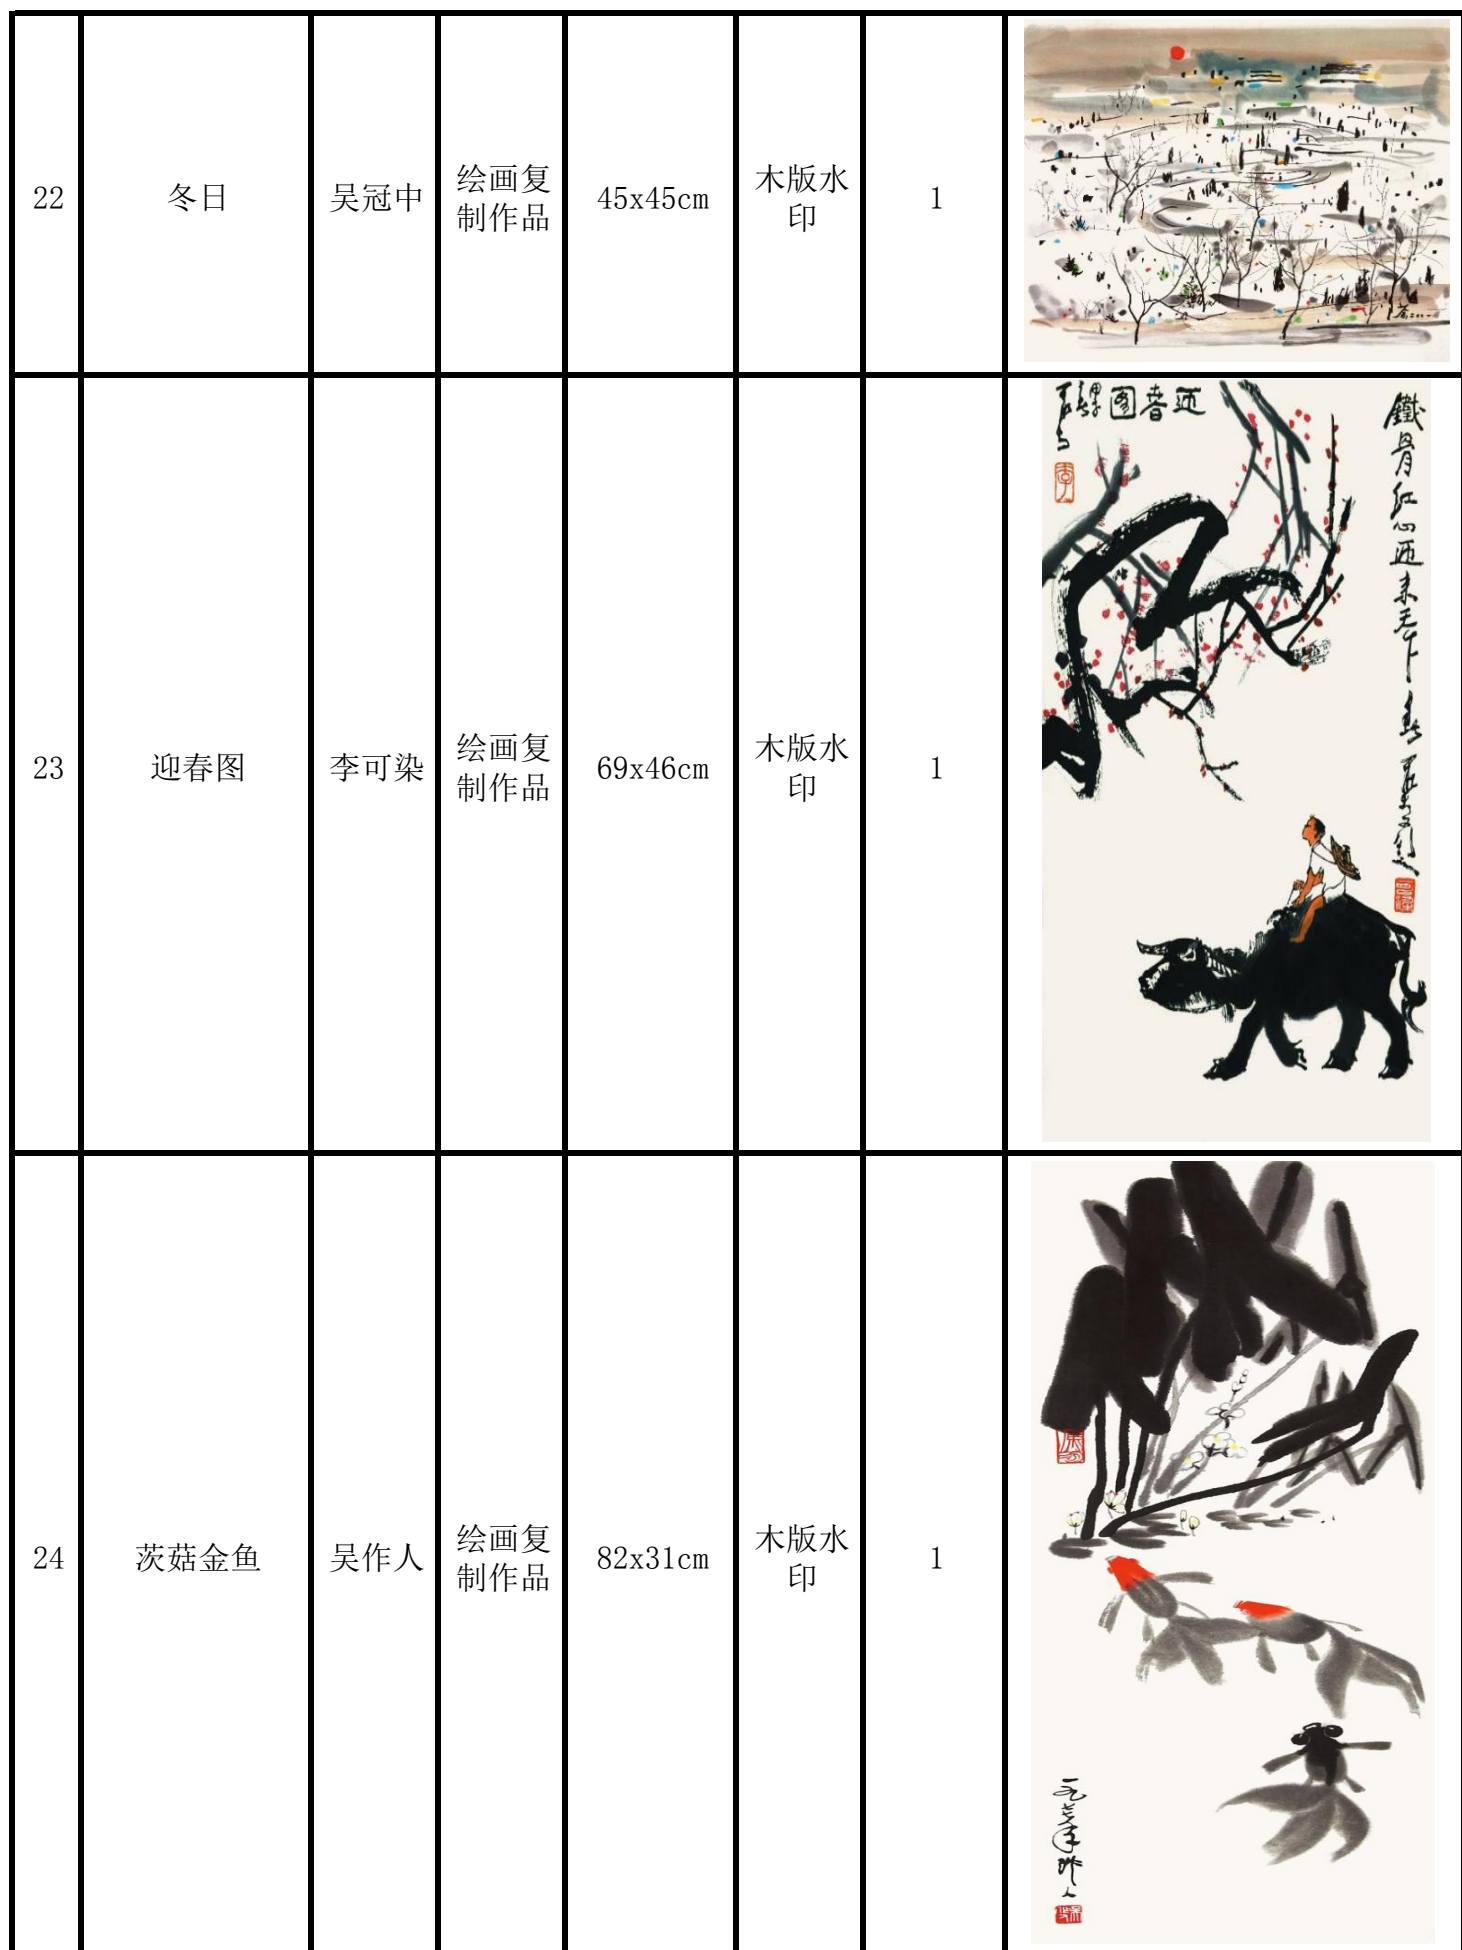 22
冬日
吴冠中
绘画复
制作品
45x45cm
木版水
印
1
23
迎春图
李可染
绘画复
制作品
69x46cm
木版水
印
1
迎春图
鐵骨红心迎来天下春
24
茨菇金鱼
吴作人
绘画复
制作品
82x31cm
木版水
印
1
作人